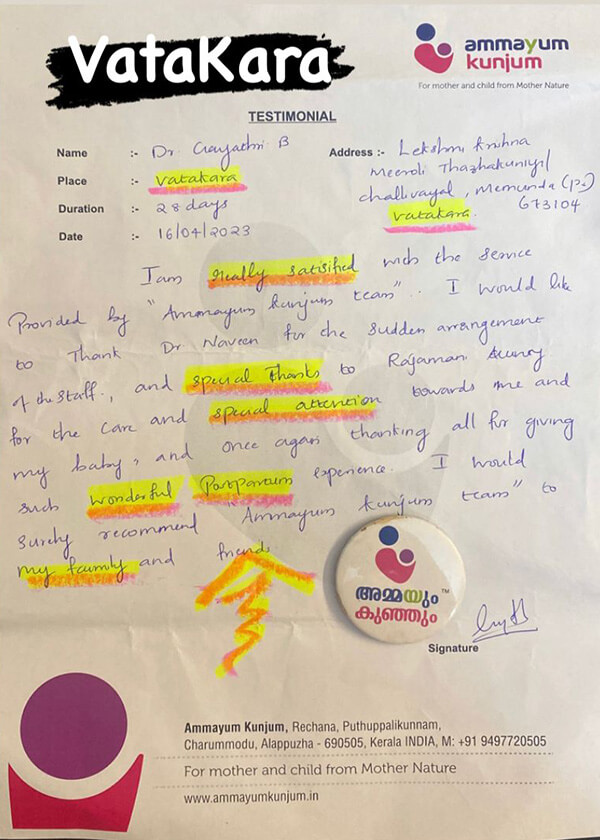 VataKara
ammayum
kunjum
For mother and child from Mother Nature
TESTIMONIAL
Name :- Dr. Gayathri B
Place :- Vatakara
Duration :- 28 days
Date :- 16/04/2023
Address :- Lekshmi Krishna
Meeroli Thazhakuniyil
challivayal, Memunda (P.)
673104
Vatakara.
I am really satisified with the service
Provided by "Ammayum kunjum team". I would like
to Thank Dr Naveen for the sudden arrangement
of the staff, and special Thanks to Rajamani
for the care and special attention towards me and
my baby, and once again thanking all for giving
such wonderful Postpartum experience. I would
surely recommend "Ammayum kunjum team" to
my family and friends
അമ്മയും TM
കുഞ്ഞും
Signature
Ammayum Kunjum, Rechana, Puthuppalikunnam,
Charummodu, Alappuzha - 690505, Kerala INDIA, M: +91 9497720505
For mother and child from Mother Nature
www.ammayumkunjum.in